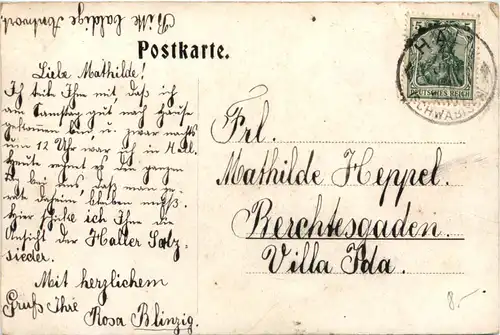 Bitte baldige Antwort.
Postkarte.
Liebe Mathilde!
Ich teile Ihn mit, daß ich
am Samstag gut nach Hause
gekommen bin, u. zwar nachts
um 12 Uhr war ich in Hall.
Heute regnet es den ganzen
Tag bei uns, daß man ge-
rade daheim bleiben muß.
Hier schicke ich Ihn die
Ansicht der Haller Salz-
sieder.
Mit herzlichem
Gruß Ihre
Rosa Blinzig.
DEUTSCHES REICH
HALL
SCHWÄB.
Frl.
Mathilde Heppel.
Berchtesgaden.
Villa Ida.
8.-